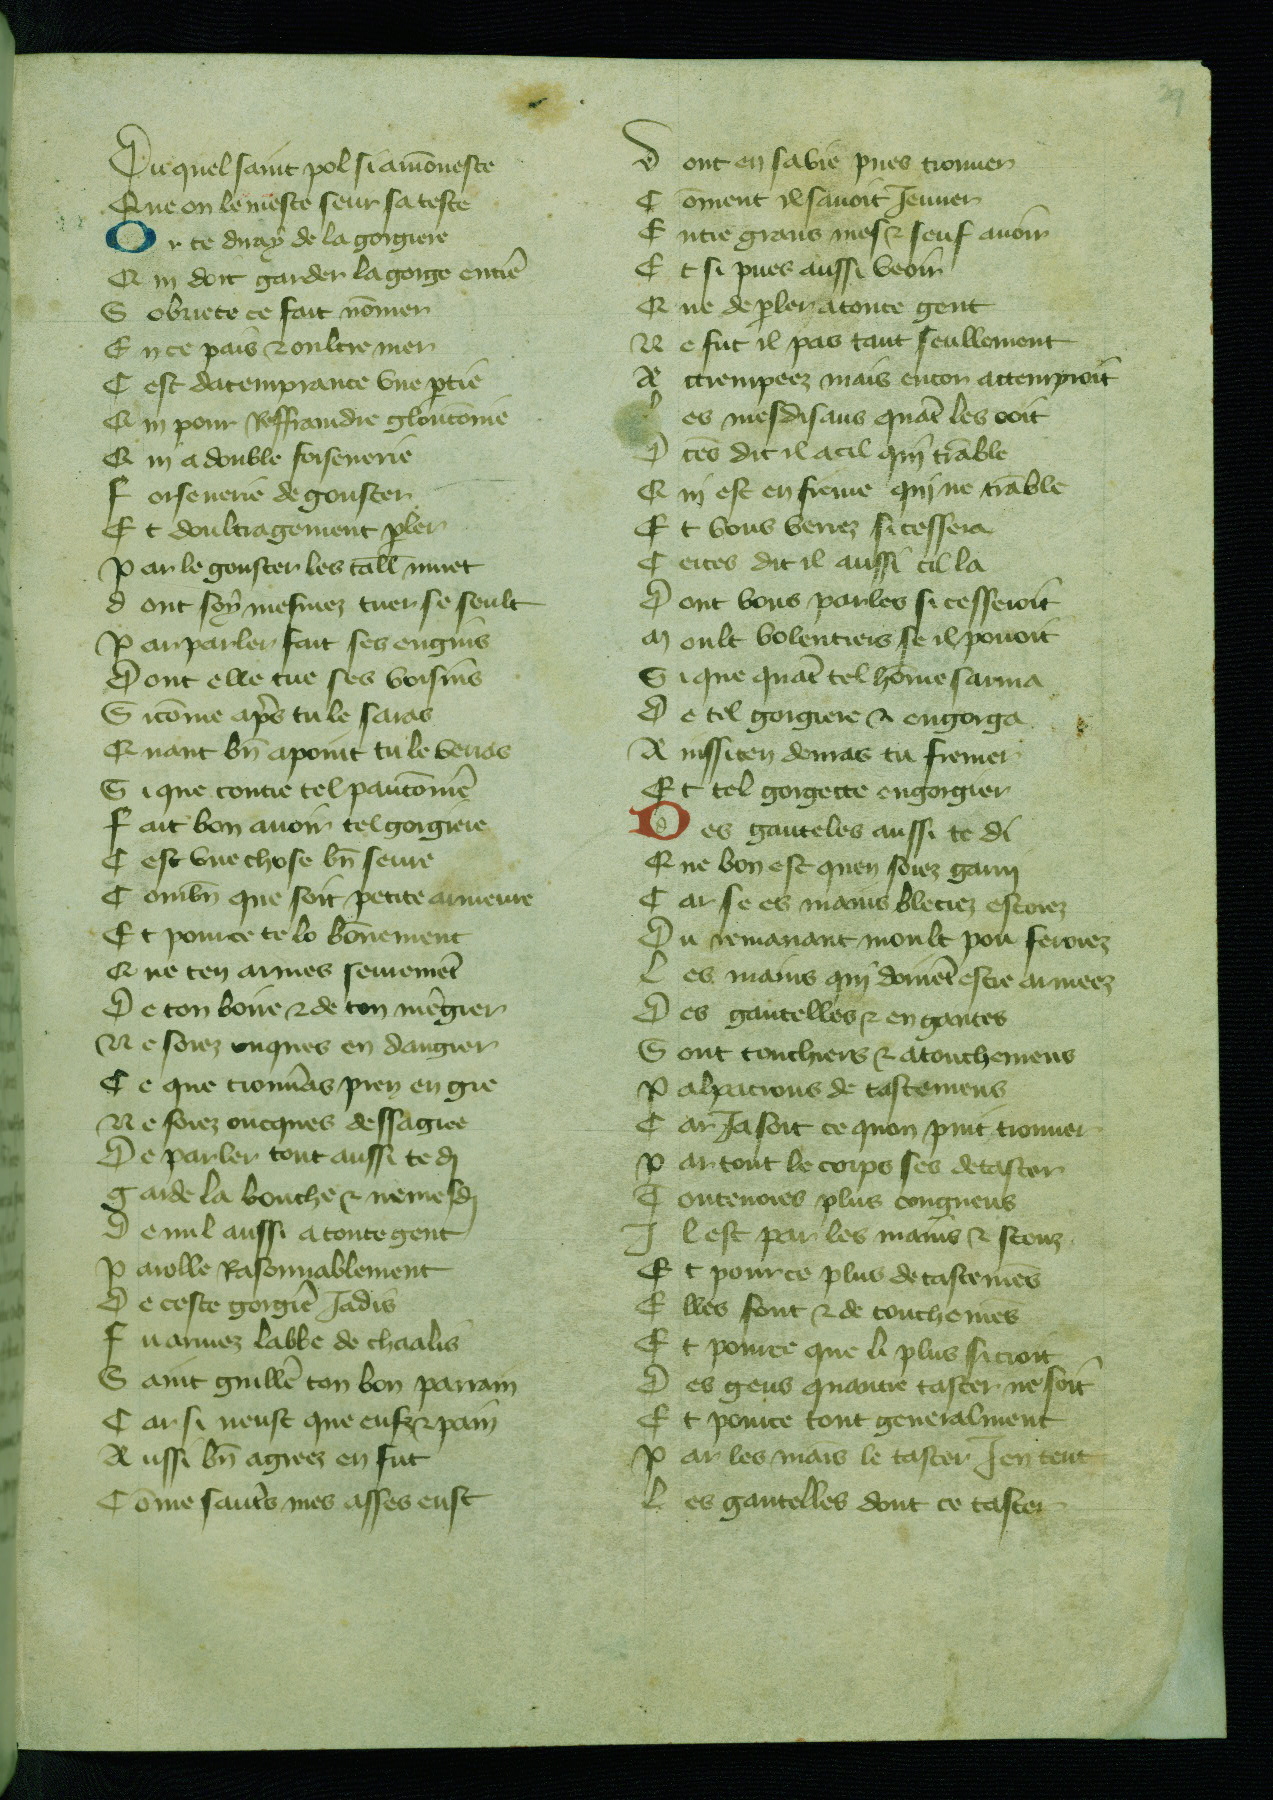 29
Du quel saint pol si amōneste
Que on le meste seur sa teste
Or te diray de la gorgiere
Qui doit garder la gorge entie͛
Sobriete ce fait nōmer
En ce pais ⁊ oultre mer
Cest datemprance vne ꝑtie
Qui pour Reffraindre gloutōnie
Qui a double forsenerie
Forsenerie de gouster
Et doultragement ꝑler
Par le gouster les muet
dont soy mesmez tuer se seult
Par parler fait ses engins
Dont elle tue ses voisins
Sicōme ap̄s tu le saras
Quant bn̄ apoint tu le verras
Si que contre tel pautōnie͛
Fait bon auoir tel gorgiere
Cest vne chose bn̄ seure
Combn̄ que soit petite armeure
Et pource te lo bōnement
Que ten armes seuremēt
De ton boire ⁊ de ton mēgier
Ne soiez onques en dangier
Ce que trouu͛as pren en gre
Ne soiez oncques dessagree
De parler tout aussi te di
garde la bouche ⁊ ne mesdi
de nul aussi a toute gent
Parolle Rasonnablement
De ceste gorgie͛ Jadis
Fu armez labbe de chaalis
Saint guille͛ ton bon parrain
Car si neust que eufz ⁊ pain
Aussi bn̄ agreez en fut
Cōme saut͛s mes asses eust
dont en sa vie pues trouuer
Cōment il sauoit Jeuner
Entre grans mes ⁊ seuf auoir
Et si pues aussi veoir
Que de ꝑler a toute gent
Ne fut il pas tant seullement
Attrempeez mais encor attemproit
les mesdisans quāt les ooit
Dit il a cil qui trāble
Qui est en frenne qui ne trāble
Et vous verrez si cessera
Certes dit il aussi cil la
Dont vous parles si cesseroit
Moult volentiers se il pouoit
Si que quāt tel hōme sarma
De tel gorgiere ⁊ engorga
Aussi ten deuras tu fremer
Et tel gorgette engorgier
Des ganteles aussi te di
Que bon est quen soiez garni
Car se es mains bleciez estoiez
Du remanant moult pou feroiez
Les mains qui doiuēt estre armeez
Des gantelles ⁊ en gantes
Sont touchiers ⁊ atouchemens
Palpacions de tastemens
Car Ja soit ce quon puit trouuer
Par tout le corps ses detaster
Toutenoies plus congneus
Il est par les mains ⁊ sceuz
Et pource plus de tastemēs
Elles font ⁊ de touchemēs
Et pource que li plus si croit
Des gens quautre taster ne soit
Et pource tout generalment
Par les mais le taster Jen tent
Les gantelles dont ce taster